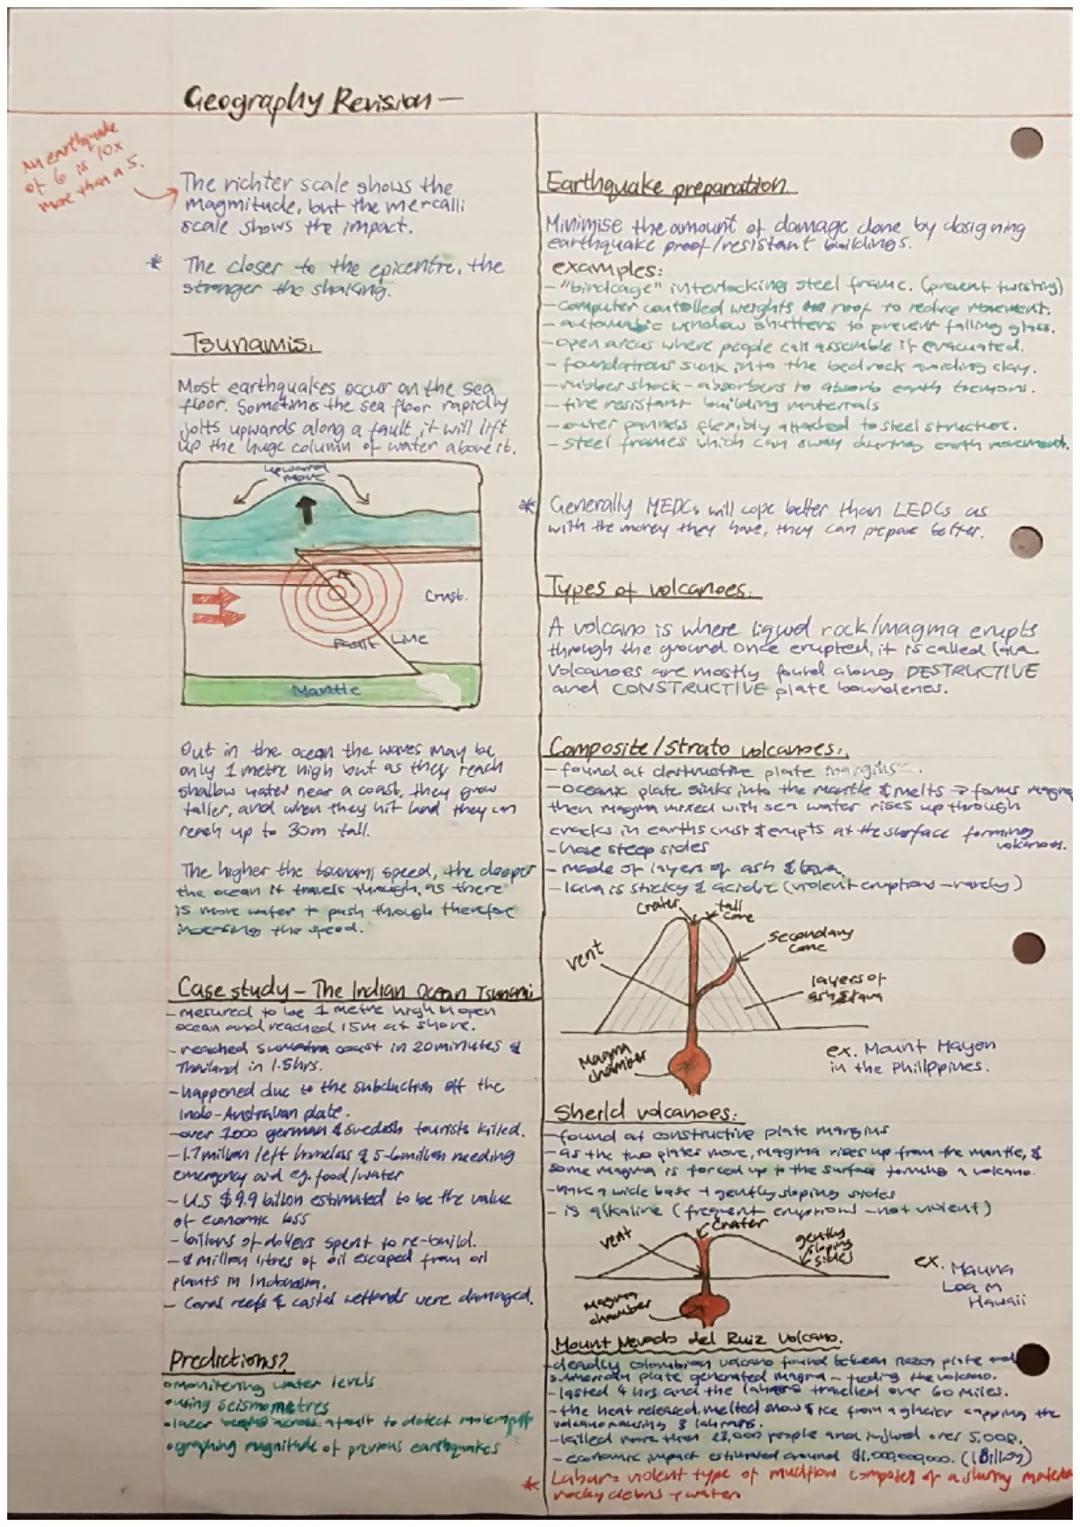 Geography Revision —
An earthquake
of 6 is 10x
more than a 5.
The richter scale shows the
magmitude, but the mercalli
scale shows the impact.
* The closer to the epicentre, the
stronger the shaking.
Tsunamis.
Most earthquakes occur on the sea
floor. Sometimes the sea floor rapidly
jolts upwards along a fault, it will lift
up the huge column of water above it.
upward
move
Crust.
Fault Line
Mantle
Out in the ocean the waves may be
only 1 metre high but as they reach
shallow water near a coast, they grow
taller, and when they hit land they can
reach up to 30m tall.
The higher the tsunami speed, the deeper
the ocean it travels through, as there
is more water to push through therefore
increasing the speed.
Case study – The Indian Ocean Tsunami
- mesured to be 1 metre high in open
ocean and reached 15m at shore.
- reached Sumatra coast in 20 minutes &
Thailand in 1.5hrs.
- happened due to the subduction off the
Indo-Australian plate.
- over 1000 german & swedish tourists killed.
- 1.7 million left homeless & 5-6 million needing
emergency aid eg. food/water
- U.S $9.9 billion estimated to be the value
of economic loss
- billions of dollers spent to re-build.
- million litres of oil escaped from oil
plants in Indonesia.
- Coral reefs & costal wettlands were damaged.
Predictions?
• monitering water levels
• using seismometres
• lazer across a fault to detect
• graphing magnitude of previous earthquakes
Earthquake preparation
Minimise the amount of damage done by designing
earthquake proof/resistant buildings.
examples:
- "birdcage" interlocking steel frame. (prevent twisting)
- computer controlled weights roof to reduce movement.
- automatic window shutters to prevent falling glass.
- open areas where people can assemble if evacuated.
- foundations sunk into the bedrock avoiding clay.
- rubber shock-absorbers to absorb earth tremors.
- fire resistant building materials
- outer pannels flexibly attached to steel structure.
- steel frames which can sway during earth movement.
* Generally MEDCs will cope better than LEDCs as
with the money they have, they can prepare better.
Types of volcanoes.
A volcano is where liquid rock/magma erupts
through the ground. Once erupted, it is called lava.
Volcanoes are mostly found along DESTRUCTIVE
and CONSTRUCTIVE plate bounderies.
Composite/Strato volcanoes:
- found at destructive plate margins.
- oceanic plate sinks into the mantle & melts → forms magma
then magma mixed with sea water rises up through
cracks in earths crust & erupts at the surface forming
volcanoes.
- have steep sides
- made of layers of ash & lava
- lava is sticky & acidic (violent eruptions – rarely)
crater
tall
cone
vent
secondary
cone
layers of
ash & lava
Magma
chamber
ex. Mount Mayon
in the Philippines.
Sheild volcanoes:
- found at constructive plate margins
- as the two plates move, magma rises up from the mantle, &
some magma is forced up to the surface forming a volcano.
- have a wide base + gently sloping sides
- is alkaline (frequent eruptions – not violent)
crater
vent
gently
sloping
sides
magma
chamber
ex. Mauna
Loa in
Hawaii
Mount Nevado del Ruiz Volcano.
- deadly colombian volcano found between Nazca plate and
S.American plate generated magma – feeding the volcano.
- lasted 4 hrs and the lahars travelled over 60 miles.
- the heat released, melted snow & ice from a glacier capping the
volcano causing 3 lahars.
- killed more than 23,000 people and injured over 5,000.
- economic impact estimated around $1,000,000,000. (1 Billion)
* Lahar = violent type of mudflow composed of a slurry material
rocky debris + water